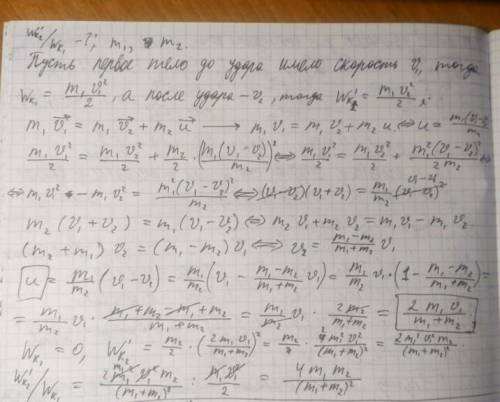 W'k₂/Wk₁ - ?; m₁, m₂.
Пусть первое тело до удара имело скорость v₁, тогда
Wk₁ = m₁v₁²/2, а после удара - v₂, тогда Wk₁' = m₁v₂²/2.
m₁v₁ = m₁v₂ + m₂u → m₁v₁ = m₁v₂ + m₂u ⇔ u = m₁(v₁-v₂)/m₂
m₁v₁²/2 = m₁v₂²/2 + m₂/2 · (m₁(v₁-v₂)/m₂)² ⇔ m₁v₁²/2 = m₁v₂²/2 + m₁²(v₁-v₂)²/2m₂ ⇔
⇔ m₁v₁² - m₁v₂² = m₁²(v₁-v₂)²/m₂ ⇔ (v₁-v₂)(v₁+v₂) = m₁/m₂ (v₁-v₂)²
m₂(v₁+v₂) = m₁(v₁-v₂) ⇔ m₂v₁ + m₂v₂ = m₁v₁ - m₁v₂
(m₂+m₁)v₂ = (m₁-m₂)v₁ ⇔ v₂ = (m₁-m₂)/(m₁+m₂) v₁
u = m₁/m₂ (v₁-v₂) = m₁/m₂ (v₁ - (m₁-m₂)/(m₁+m₂) v₁) = m₁/m₂ v₁ · (1 - (m₁-m₂)/(m₁+m₂)) =
= m₁/m₂ v₁ · (m₁+m₂-m₁+m₂)/(m₁+m₂) = m₁/m₂ v₁ · 2m₂/(m₁+m₂) = 2m₁v₁/(m₁+m₂).
Wk₂ = 0, Wk₂' = m₂/2 · (2m₁v₁/(m₁+m₂))² = m₂/2 · 4m₁²v₁²/(m₁+m₂)² = 2m₁²v₁²m₂/(m₁+m₂)².
Wk₂'/Wk₁ = 2m₁²v₁²m₂/(m₁+m₂)² : m₁v₁²/2 = 4m₁m₂/(m₁+m₂)²